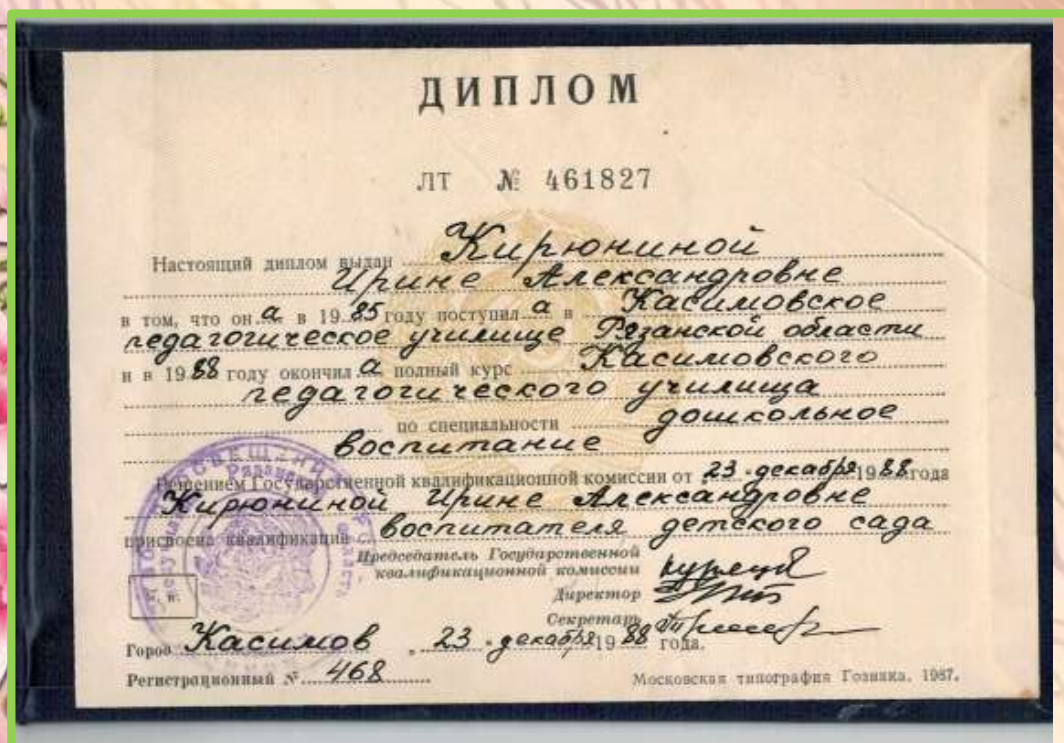 ДИПЛОМ
ЛТ № 461827
Настоящий диплом выдан Кирюниной
Ирине Александровне
в том, что он а в 1985 году поступил а в Касимовское
педагогическое училище Рязанской области
и в 1988 году окончил а полный курс Касимовского
педагогического училища
по специальности дошкольное
воспитание
Решением Государственной квалификационной комиссии от 23 декабря 1988 года
Кирюниной Ирине Александровне
присвоена квалификация воспитателя детского сада
Председатель Государственной
квалификационной комиссии
Директор
Секретарь
Город Касимов , 23 декабря 1988 года.
Регистрационный № 468
Московская типография Гознака. 1987.